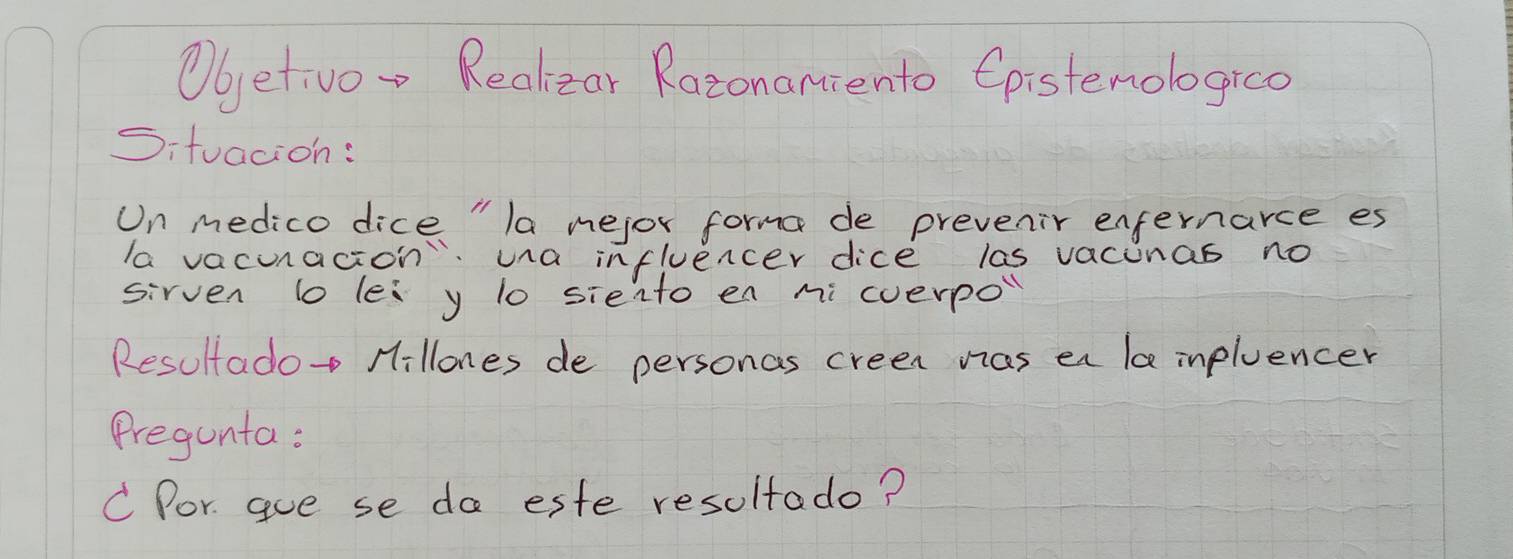 Objetivo → Realizar Razonamiento Epistemologico
Situación:
Un medico dice "la mejor forma de prevenir enfermarce es
la vacunación". una influencer dice las vacunas no
sirven lo leí y lo siento en mi cuerpo"
Resultado → Millones de personas creen mas en la inpluencer
Pregunta:
¿Por que se da este resultado?